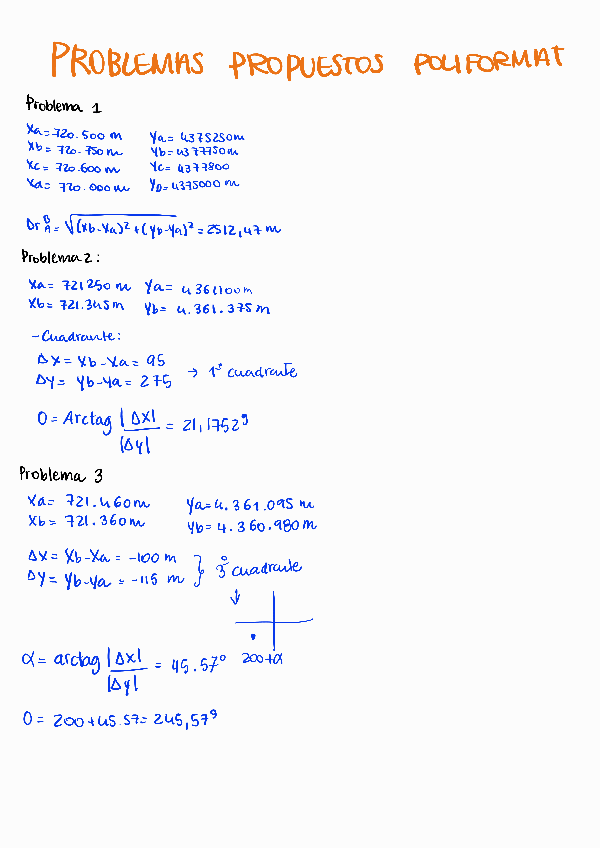 PROBLEMAS PROPUESTOS POLIFORMAT
Problema 1
Xa= 720.500 m Ya= 4375250m
Xb= 720.750 m Yb= 4377750m
Xc= 720.600 m Yc= 4377800
Xa= 720.000 m YD= 4375000 m
Dr B A = √(Xb-Xa)²+(Yb-Ya)² = 2512,47 m
Problema 2:
Xa= 721250 m Ya= 4361100m
Xb= 721.345m Yb= 4.361.375m
- Cuadrante:
ΔX= Xb-Xa= 95
ΔY= Yb-Ya= 275 → 1º cuadrante
O= Arctag |ΔX| / |Δy| = 21,1752g
Problema 3
Xa= 721.460m Ya= 4.361.095 m
Xb= 721.360m Yb= 4.360.980m
ΔX= Xb-Xa= -100 m
ΔY= Yb-Ya= -115 m } 3º cuadrante
↓
α= arctag |Δx| / |Δy| = 45.57º 200+α
O= 200+45.57= 245,57g